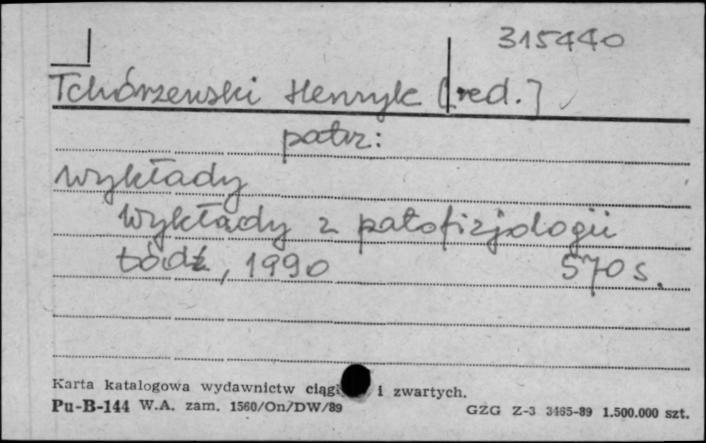 315440
Tchórzewski Henryk [red.]
patrz:
wykłady
Wykłady z patofizjologii
Łódź, 1990 570 s.
Karta katalogowa wydawnictw i zwartych.
Pu-B-144 W.A. zam. 1560/On/DW/89 GZG Z-3 3465-89 1.500.000 szt.